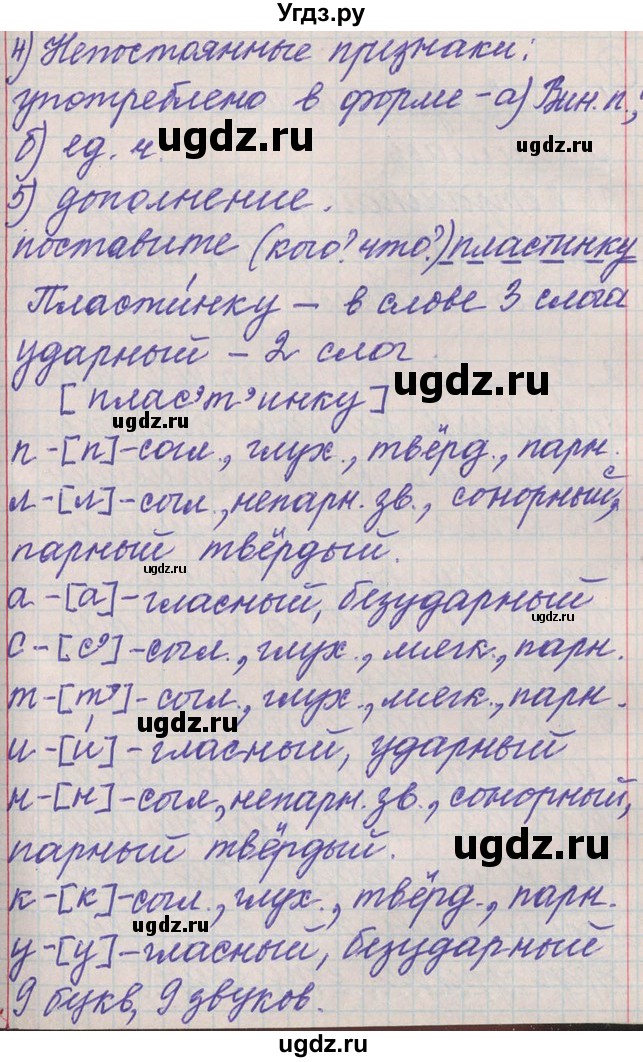 Угдз.ру
4) Непостоянные признаки:
употреблено в форме - а) Вин. п.,
ugdz.ru ugdz.ru
б) ед. ч.
5) дополнение.
ugdz.ru
поставите (кого? что?) пластинку
Пласти́нку – в слове 3 слога
ударный – 2 слог.
ugdz.ru
[плас’т’инку]
ugdz.ru
п - [п] - согл., глух., твёрд., парн.
л - [л] - согл., непарн. зв., сонорный,
парный твёрдый.
ugdz.ru
а - [а] - гласный, безударный
с - [с’] - согл., глух., мягк., парн.
т - [т’] - согл., глух., мягк., парн.
ugdz.ru
и - [и́] - гласный, ударный
н - [н] - согл., непарн. зв., сонорный,
парный твёрдый.
ugdz.ru
к - [к] - согл., глух., твёрд., парн.
ugdz.ru
у - [у] - гласный, безударный
9 букв, 9 звуков.
ugdz.ru